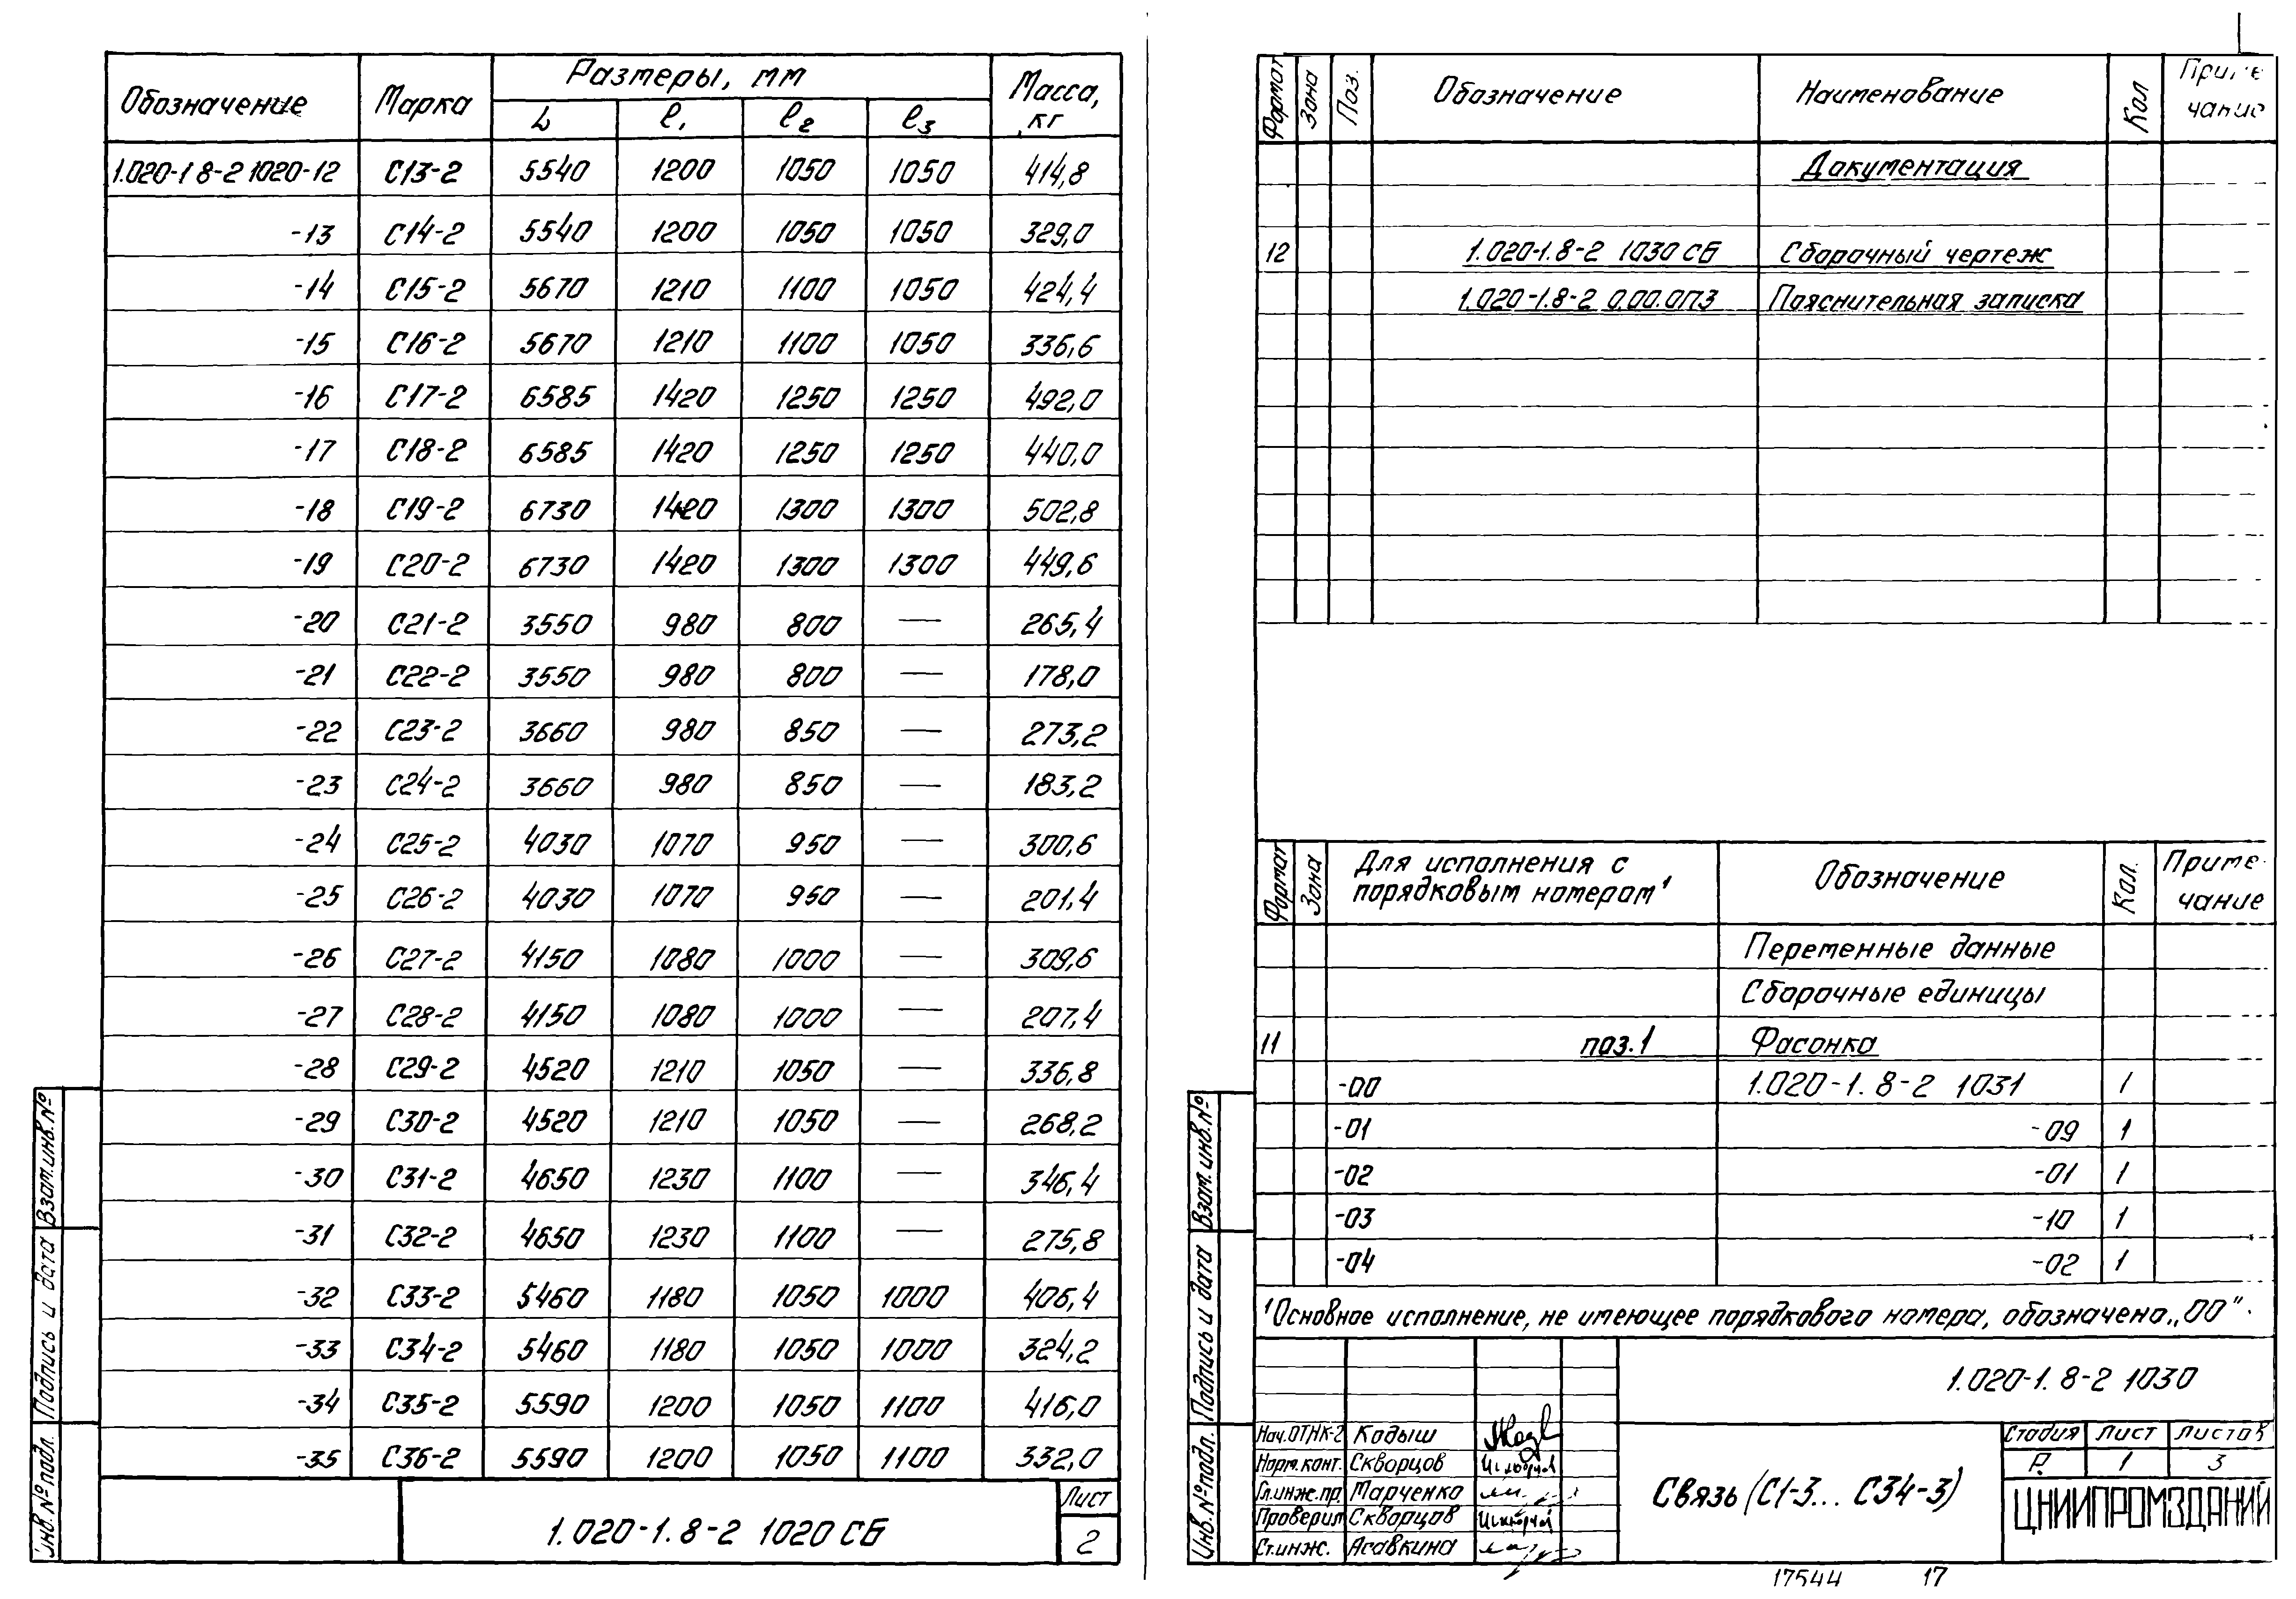 Обозначение Марка Размеры, мм Масса, кг
L ℓ1 ℓ2 ℓ3
1.020-1 8-2 1020-12 С13-2 5540 1200 1050 1050 414,8
-13 С14-2 5540 1200 1050 1050 329,0
-14 С15-2 5670 1210 1100 1050 424,4
-15 С16-2 5670 1210 1100 1050 336,6
-16 С17-2 6585 1420 1250 1250 492,0
-17 С18-2 6585 1420 1250 1250 440,0
-18 С19-2 6730 1420 1300 1300 502,8
-19 С20-2 6730 1420 1300 1300 449,6
-20 С21-2 3550 980 800 — 265,4
-21 С22-2 3550 980 800 — 178,0
-22 С23-2 3660 980 850 — 273,2
-23 С24-2 3660 980 850 — 183,2
-24 С25-2 4030 1070 950 — 300,6
-25 С26-2 4030 1070 950 — 201,4
-26 С27-2 4150 1080 1000 — 309,6
-27 С28-2 4150 1080 1000 — 207,4
-28 С29-2 4520 1210 1050 — 336,8
-29 С30-2 4520 1210 1050 — 268,2
-30 С31-2 4650 1230 1100 — 346,4
-31 С32-2 4650 1230 1100 — 275,8
-32 С33-2 5460 1180 1050 1000 406,4
-33 С34-2 5460 1180 1050 1000 324,2
-34 С35-2 5590 1200 1050 1100 416,0
-35 С36-2 5590 1200 1050 1100 332,0
1.020-1.8-2 1020 СБ
Лист
2
Взам.инв.№
Подпись и дата
Инв.№ подл.
Формат Зона Поз. Обозначение Наименование Кол Приме
чание
Документация
12 1.020-1.8-2 1030 СБ Сборочный чертеж
1.020-1.8-2 0.00.0ПЗ Пояснительная записка
Формат Зона Для исполнения с
порядковым номером¹ Обозначение Кол. Приме-
чание
Переменные данные
Сборочные единицы
11 поз.1 Фасонка
-00 1.020-1.8-2 1031 1
-01 -09 1
-02 -01 1
-03 -10 1
-04 -02 1
¹Основное исполнение, не имеющее порядкового номера, обозначено „00".
1.020-1.8-2 1030
Нач.ОТНК-2 Кодыш
Норм.конт. Скворцов
Гл.инж.пр. Марченко
Проверил Скворцов
Ст.инж. Асавкина
Связь (С1-3... С34-3)
Стадия Лист Листов
Р. 1 3
ЦНИИПРОМЗДАНИЙ
Взам.инв.№
Подпись и дата
Инв.№ подл.
17544 17